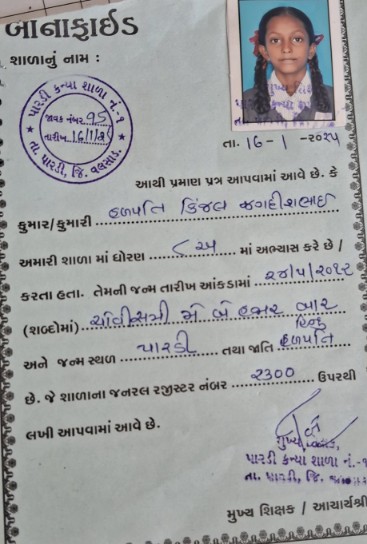 બોનાફાઈડ
શાળાનું નામ :
પારડી કન્યા શાળા નં.-૧
જાવક નંબર 95
તારીખ 16/1/25
તા. પારડી, જિ. વલસાડ.
તા. 16 - 1 - ૨૦૨૫
આથી પ્રમાણ પત્ર આપવામાં આવે છે. કે
કુમાર/કુમારી હળપતિ કિંજલ જગદીશભાઈ
અમારી શાળા માં ધોરણ ૮ અ માં અભ્યાસ કરે છે /
કરતા હતા. તેમની જન્મ તારીખ આંકડામાં ૨૪/૫/૨૦૧૨
(શબ્દોમાં) ચોવીસમી મે બે હજાર બાર
અને જન્મ સ્થળ પારડી તથા જાતિ હિન્દુ હળપતિ
છે. જે શાળાના જનરલ રજીસ્ટર નંબર ૨300 ઉપરથી
લખી આપવામાં આવે છે.
મુખ્ય
પારડી કન્યા શાળા નં.-૧
તા. પારડી, જિ.
મુખ્ય શિક્ષક / આચાર્યશ્રી